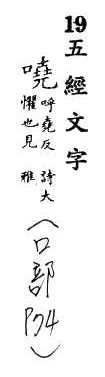 19五經文字
嘵 呼堯反 詩大
懼也見 雅
(口部P74)